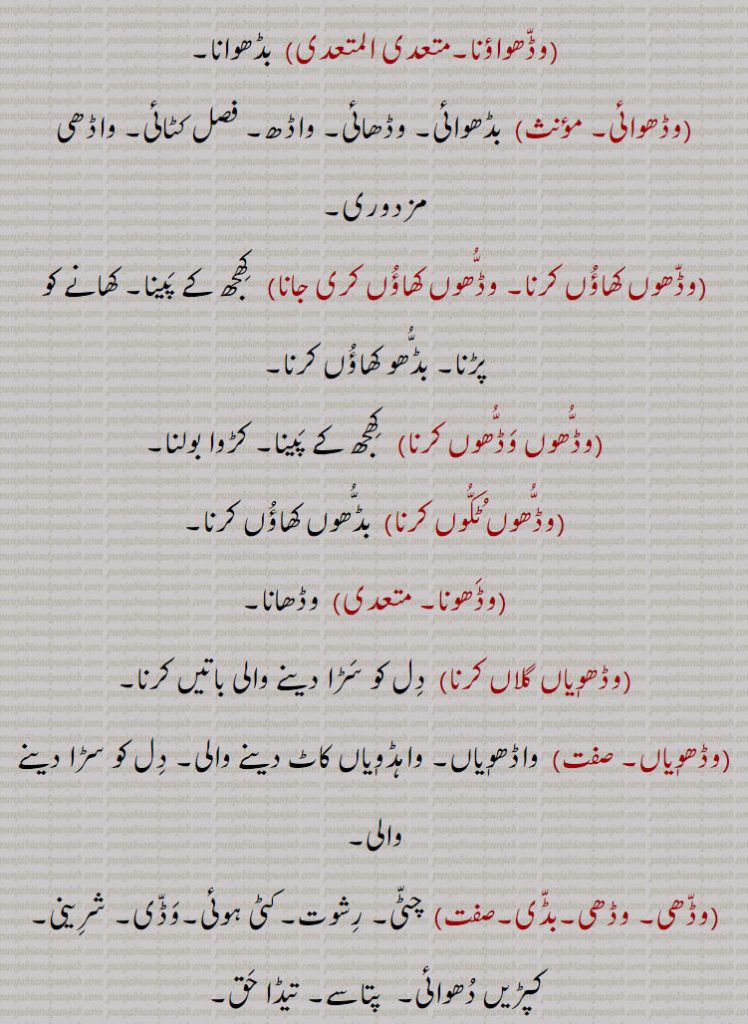 (وڈّھواؤنا۔متعدی المتعدی) بڈھوانا۔
(وڈھوائی۔ مؤنث) بڈھوائی۔ وڈھائی۔ واڈھ۔ فصل کٹائی۔ واڈھی
مزدوری۔
(وڈّھوں کھاؤُں کرنا۔ وڈُّھوں کھاؤُں کری جانا) کِھجھ کے پَینا۔ کھانے کو
پڑنا۔ بڈُّھو کھاؤُں کرنا۔
(وڈُّھوں وَڈُّھوں کرنا) کِھجھ کے پَینا۔ کڑوا بولنا۔
(وڈُّھوں ٹُکُّوں کرنا) بڈُّھوں کھاؤُں کرنا۔
(وڈَھونا۔ متعدی) وڈھانا۔
(وڈھوِیاں گلاں کرنا) دِل کو سَڑا دینے والی باتیں کرنا۔
(وڈھوِیاں۔ صفت) واڈھوِیاں۔ واہڈوِیاں کاٹ دینے والی۔ دِل کو سڑا دینے
والی۔
(وڈّھی۔ وڈھی۔بڈّی۔صفت) چٹّی۔ رِشوت۔کٹی ہوئی۔وَڈّی۔ شرِینی۔
کپڑیں دُھوائی۔ پتاسے۔ تیڈا حَق۔